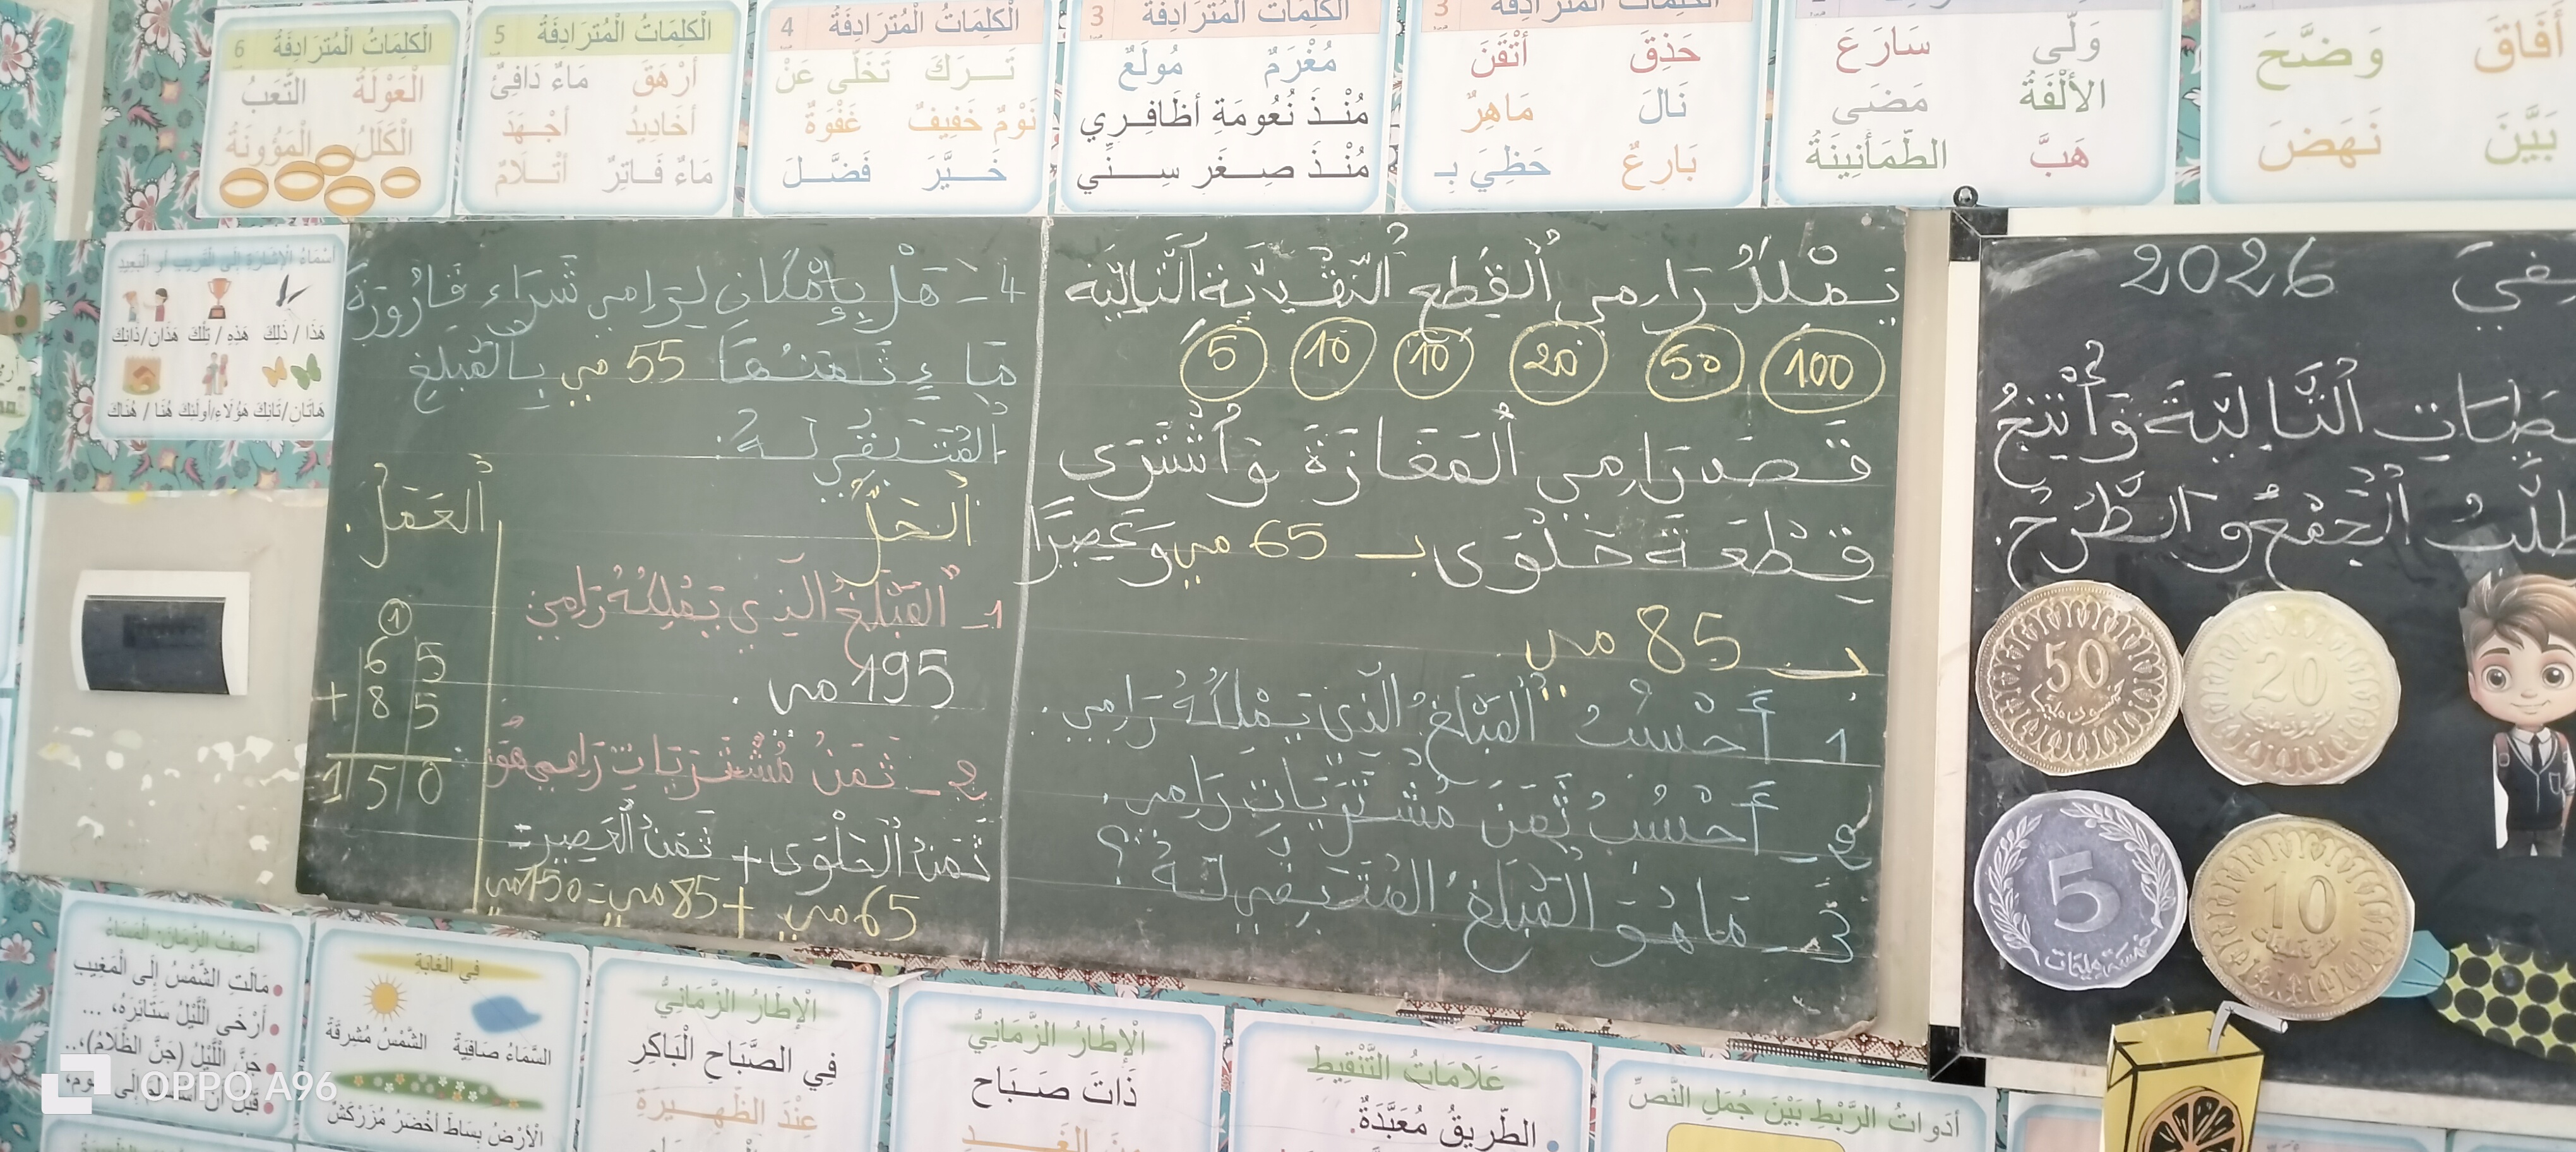 الْكَلِمَاتُ الْمُتَرَادِفَةُ 6
الْعَوْلَةُ التَّعَبُ
الْكَلَلُ الْمَؤُونَةُ
الْكَلِمَاتُ الْمُتَرَادِفَةُ 5
أَرْهَقَ مَاءٌ دَافِئٌ
أَخَادِيدُ أَجْهَدَ
مَاءٌ فَاتِرٌ أَثْلَامٌ
الْكَلِمَاتُ الْمُتَرَادِفَةُ 4
تَرَكَ تَخَلَّى عَنْ
نَوْمٌ خَفِيفٌ غَفْوَةٌ
خَيَّرَ فَضَّلَ
الْكَلِمَاتُ الْمُتَرَادِفَةُ 3
مُغْرَمٌ مُولَعٌ
مُنْذُ نُعُومَةِ أَظَافِرِي
مُنْذُ صِغَرِ سِنِّي
الْكَلِمَاتُ الْمُتَرَادِفَةُ 3
حَذِقَ أَتْقَنَ
نَالَ مَاهِرٌ
بَارِعٌ حَظِيَ بِـ
وَلَّى سَارَعَ
الأُلْفَةُ مَضَى
هَبَّ الطُّمَأْنِينَةُ
أَفَاقَ وَضَّحَ
بَيَّنَ نَهَضَ
أَسْمَاءُ الْإِشَارَةِ إِلَى الْقَرِيبِ أَوِ الْبَعِيدِ
هَذَا / ذَلِكَ هَذِهِ / تِلْكَ هَذَانِ/ذَانِكَ
هَاتَانِ/تَانِكَ هَؤُلَاءِ/أُولَئِكَ هُنَا / هُنَاكَ
يَمْلِكُ رَامِي الْقِطَعَ النَّقْدِيَّةَ التَّالِيَةَ
100 50 20 10 10 5
قَصَدَ رَامِي الْمَغَازَةَ وَاشْتَرَى
قِطْعَةَ حَلْوَى بـ 65 مي وَعَصِيرًا
بـ 85 مي
1 - أَحْسُبُ الْمَبْلَغَ الَّذِي يَمْلِكُهُ رَامِي.
2 - أَحْسُبُ ثَمَنَ مُشْتَرَيَاتِ رَامِي.
3 - مَا هُوَ الْمَبْلَغُ الْمُتَبَقِّي لَهُ؟
4 - هَلْ بِإِمْكَانِ لِرَامِي شِرَاءُ قَارُورَةَ
مَاءٍ ثَمَنُهَا 55 مي بِالْمَبْلَغِ
الْمُتَبَقِّي لَهُ؟
الْحَلُّ
1 - الْمَبْلَغُ الَّذِي يَمْلِكُهُ رَامِي
195 مي.
2 - ثَمَنُ مُشْتَرَيَاتِ رَامِي هُوَ:
ثَمَنُ الْحَلْوَى + ثَمَنُ الْعَصِيرِ =
65 مي + 85 مي = 150 مي
الْعَمَلُ.
1
6 5
+ 8 5
1 5 0
2026
التَّالِيَةَ وَأُنْتِجُ
الْجَمْعَ وَالطَّرْحَ.
50
خمسون مليما
20
عشرون مليما
5
خمسة مليمات
10
عشر مليمات
أَصِفُ الزَّمَانَ: الْمَسَاءُ
مَالَتِ الشَّمْسُ إِلَى الْمَغِيبِ
أَرْخَى اللَّيْلُ سَتَائِرَهُ، ...
جَنَّ اللَّيْلُ (جَنَّ الظَّلَامُ)،..
فِي الْغَابَةِ
السَّمَاءُ صَافِيَةٌ الشَّمْسُ مُشْرِقَةٌ
الْأَرْضُ بِسَاطٌ أَخْضَرُ مُزَرْكَشٌ
الْإِطَارُ الزَّمَانِيُّ
فِي الصَّبَاحِ الْبَاكِرِ
عِنْدَ الظَّهِيرَةِ
الْإِطَارُ الزَّمَانِيُّ
ذَاتَ صَبَاحٍ
عَلَامَاتُ التَّنْقِيطِ
الطَّرِيقُ مُعَبَّدَةٌ.
أَدَوَاتُ الرَّبْطِ بَيْنَ جُمَلِ النَّصِّ
OPPO A96